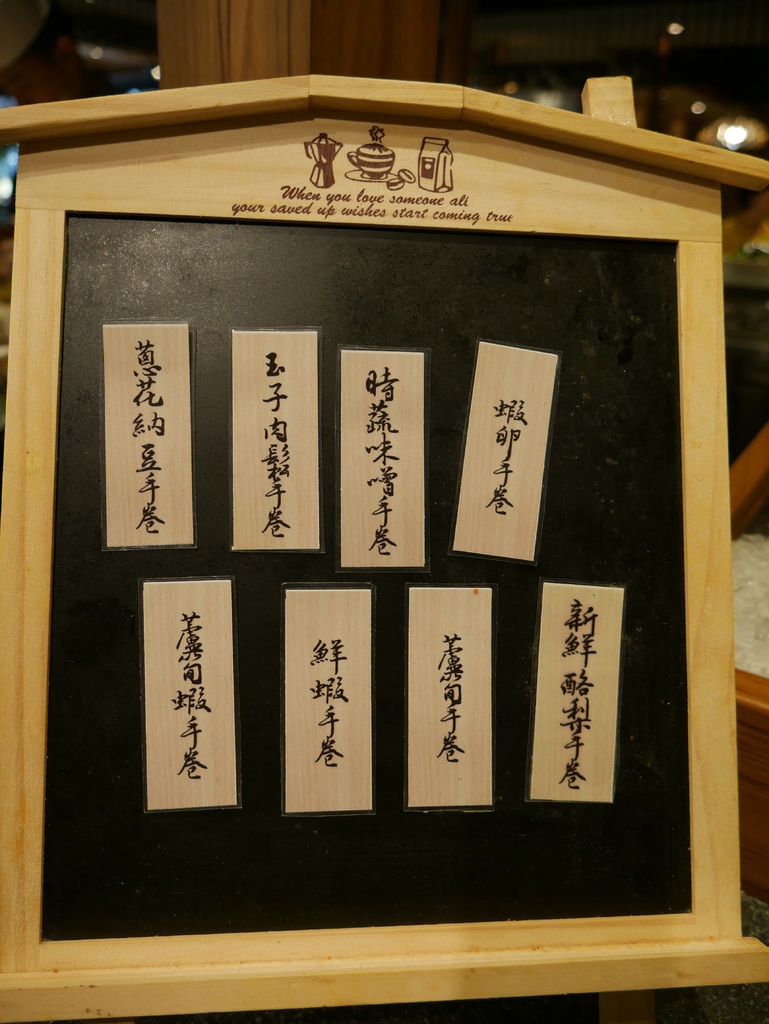 When you love someone all
your saved up wishes start coming true
蔥花納豆手卷
玉子肉鬆手卷
時蔬味噌手卷
蝦卵手卷
蘆筍蝦手卷
鮮蝦手卷
蘆筍手卷
新鮮酪梨手卷